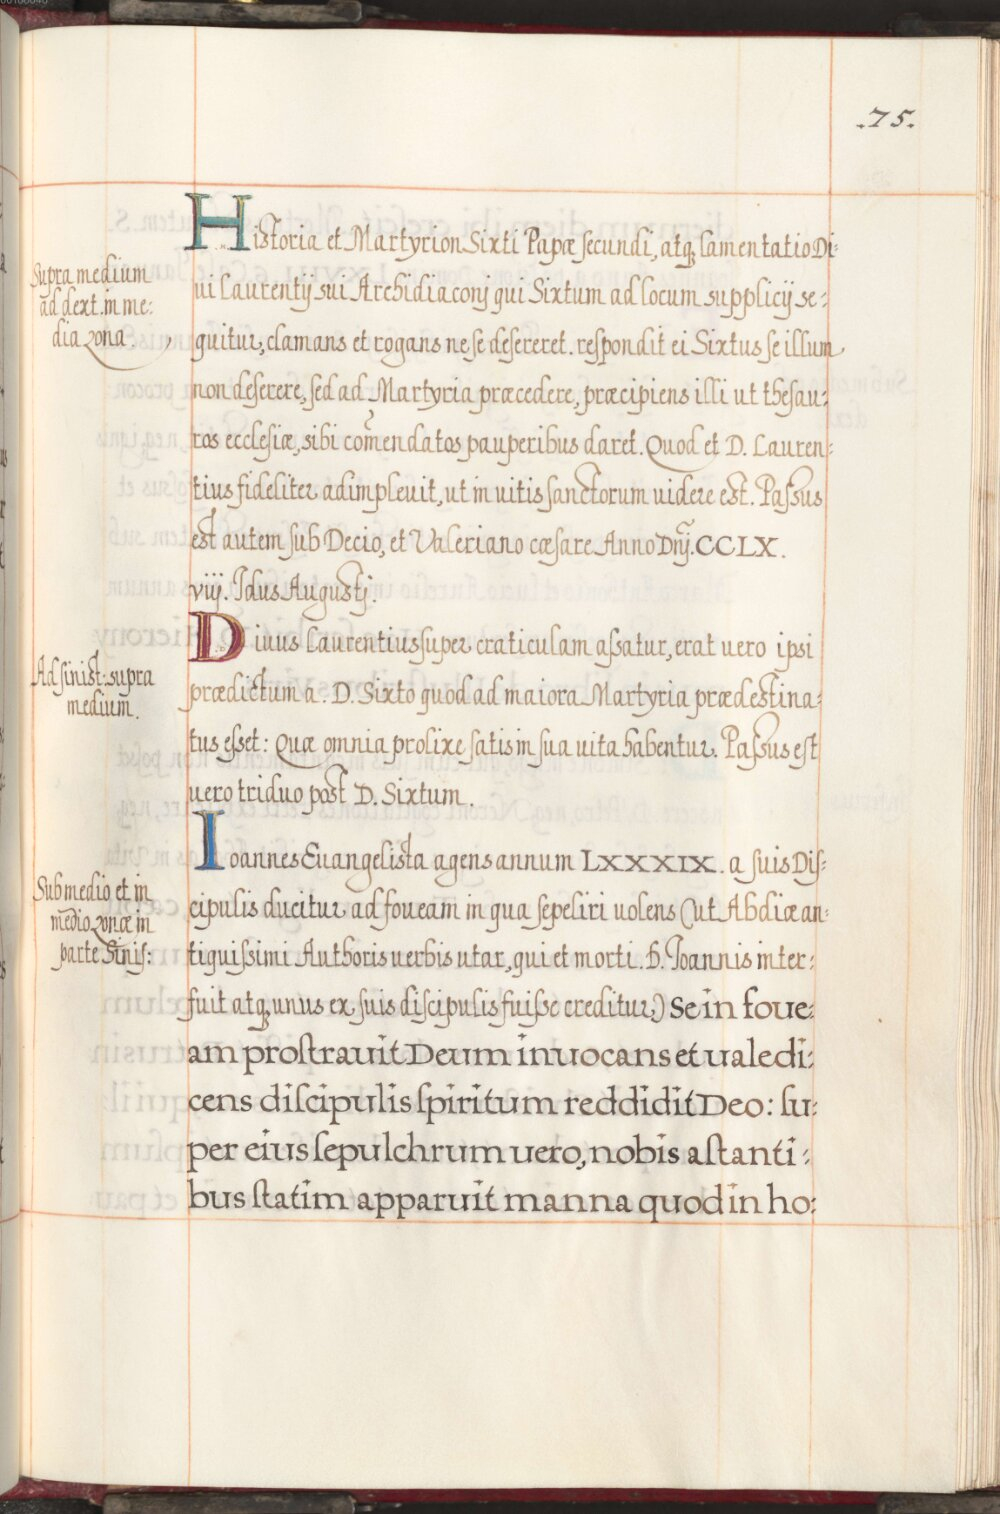 .75.
Historia et Martyrion Sixti Papæ secundi, atq; lamentatio Di-
ui Laurentij sui Archidiaconj qui Sixtum ad locum supplicij se-
quitur, clamans et rogans ne se desereret. respondit ei Sixtus se illum
non deserere, sed ad Martyria præcedere, præcipiens illi ut thesau-
ros ecclesiæ, sibi com̃endatos pauperibus daret. Quod et D. Lauren-
tius fideliter adimplevit, ut in uitis sanctorum uidere est. Passus
est autem sub Decio, et Valeriano cæsare Anno Dñj. CCLX.
viij. Idus Augustj.
Diuus Laurentius super craticulam assatur, erat uero ipsi
prædictum a. D. Sixto quod ad maiora Martyria prædestina-
tus esset: Quæ omnia prolixe satis in sua uita habentur. Passus est
uero triduo post D. Sixtum.
Ioannes Euangelista agens annum LXXXIX. a suis Dis-
cipulis ducitur ad foueam in qua sepeliri uolens (ut Abdiæ an-
tiquissimi Authoris uerbis utar, qui et morti. b. Joannis inter-
fuit atq; unus ex suis discipulis fuisse creditur,) se in foue-
am prostrauit Deum inuocans et ualedi-
cens discipulis spiritum reddidit Deo: su-
per eius sepulchrum uero, nobis astanti-
bus statim apparuit manna quod in ho-
Supra medium
ad dext. in me-
dia zona.
Ad sinist: supra
medium.
Sub medio et in
medio zonæ in
parte Sinis: